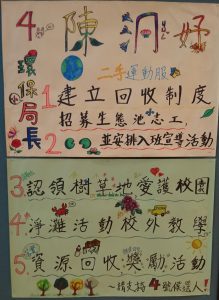 4 陳汮妤
環保局長
二手運動服
1 建立回收制度
招募生態池志工
2 並安排入班宣導活動
3. 認領樹草地愛護校園
4. 淨灘活動校外教學
5. 資源回收獎勵活動
~請支持4號候選人!